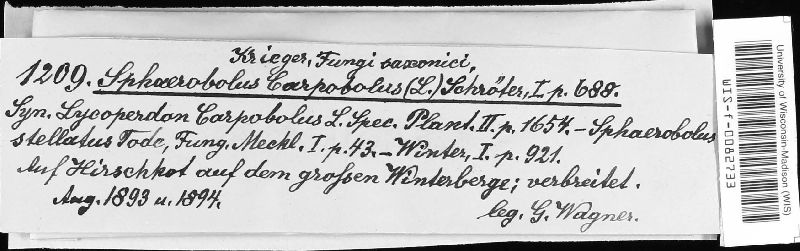 Krieger, Fungi saxonici,
1209. Sphaerobolus Carpobolus (L.) Schröter, I. p. 688.
Syn. Lycoperdon Carpobolus L. Spec. Plant. II. p. 1654. – Sphaerobolus
stellatus Tode, Fung. Meckl. I. p. 43. – Winter, I. p. 921.
Auf Hirschkot auf dem grossen Winterberge; verbreitet.
Aug. 1893 u. 1894.
leg. G. Wagner.
University of Wisconsin-Madison (WIS)
WIS-f-0082733